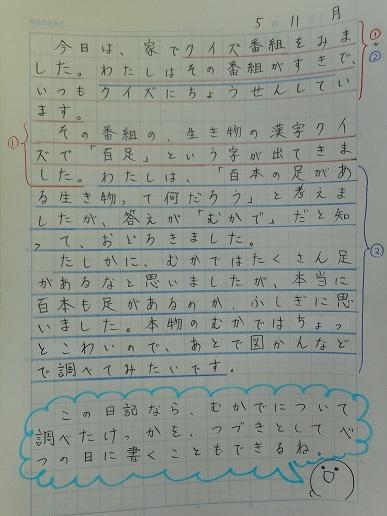 5 11 月
今日は、家でクイズ番組をみま
した。わたしはその番組がすきで、
いつもクイズにちょうせんしてい
ます。
その番組の、生き物の漢字クイ
ズで「百足」という字が出てきま
した。わたしは、「百本の足があ
る生き物って何だろう」と考えま
したが、答えが「むかで」だと知
って、おどろきました。
たしかに、むかではたくさん足
があるなと思いましたが、本当に
百本も足があるのか、ふしぎに思
いました。本物のむかではちょっ
とこわいので、あとで図かんなど
で調べてみたいです。
この日記なら、むかでについて
調べたけっかを、つづきとしてべ
つの日に書くこともできるね。
①
+
②
①
②